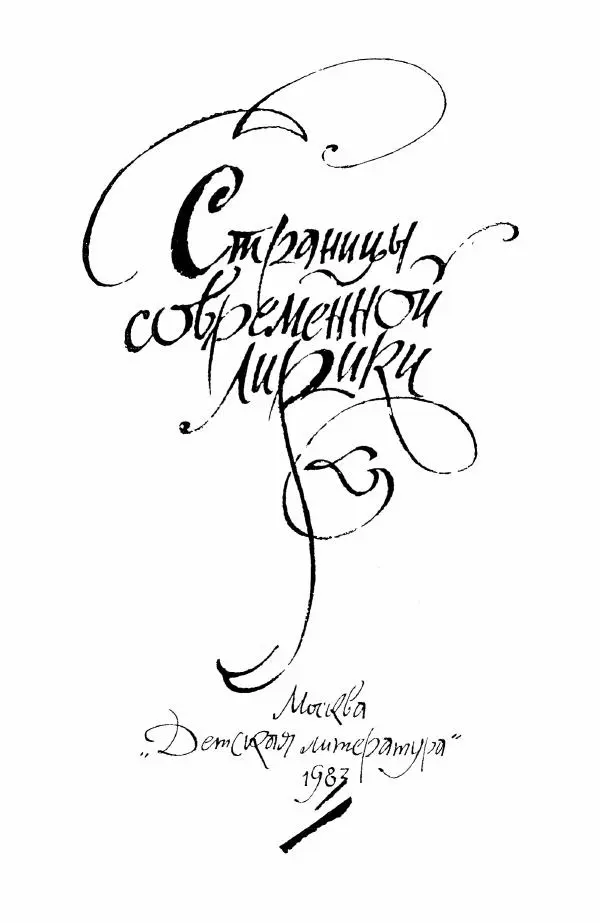 Страницы
современной
лирики
Москва
„Детская литература“
1983